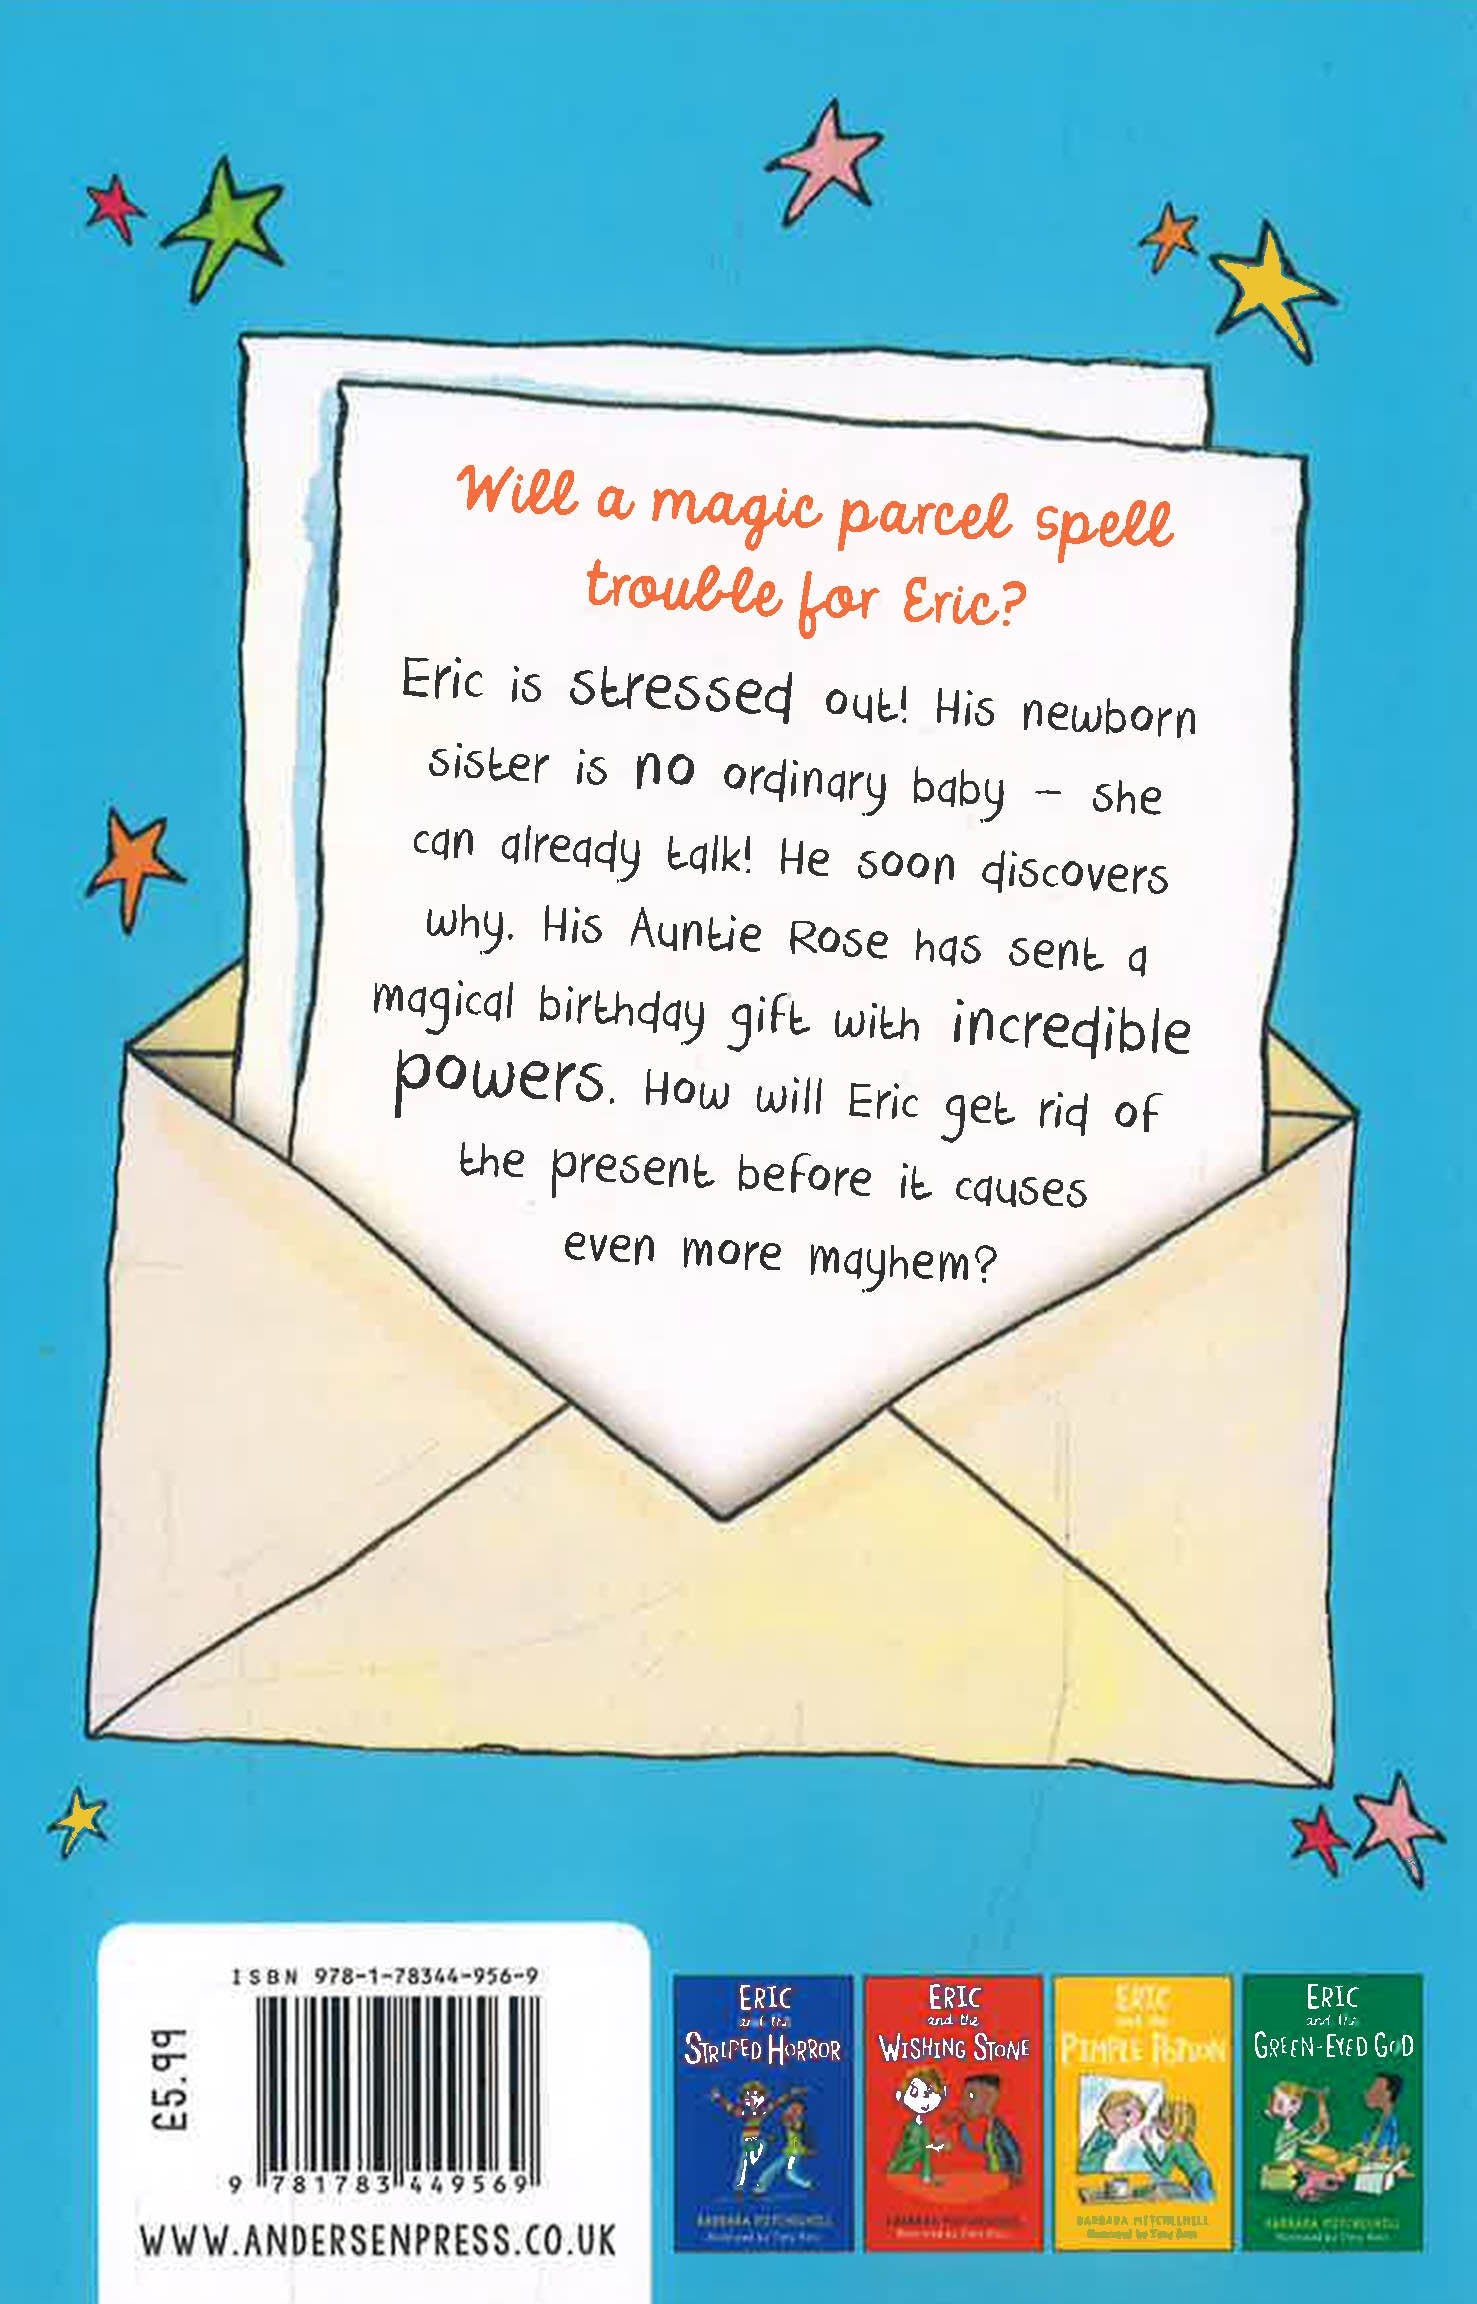 Will a magic parcel spell
trouble for Eric?
Eric is stressed out! His newborn
sister is no ordinary baby – she
can already talk! He soon discovers
why. His Auntie Rose has sent a
magical birthday gift with incredible
powers. How will Eric get rid of
the present before it causes
even more mayhem?
ISBN 978-1-78344-956-9
£5.99
9 781783 449569
WWW.ANDERSENPRESS.CO.UK
ERIC
and the
STRIPED HORROR
BARBARA MITCHELHILL
Illustrated by Tony Ross
ERIC
and the
WISHING STONE
BARBARA MITCHELHILL
Illustrated by Tony Ross
ERIC
and the
PIMPLE POTION
BARBARA MITCHELHILL
Illustrated by Tony Ross
ERIC
and the
GREEN-EYED GOD
BARBARA MITCHELHILL
Illustrated by Tony Ross